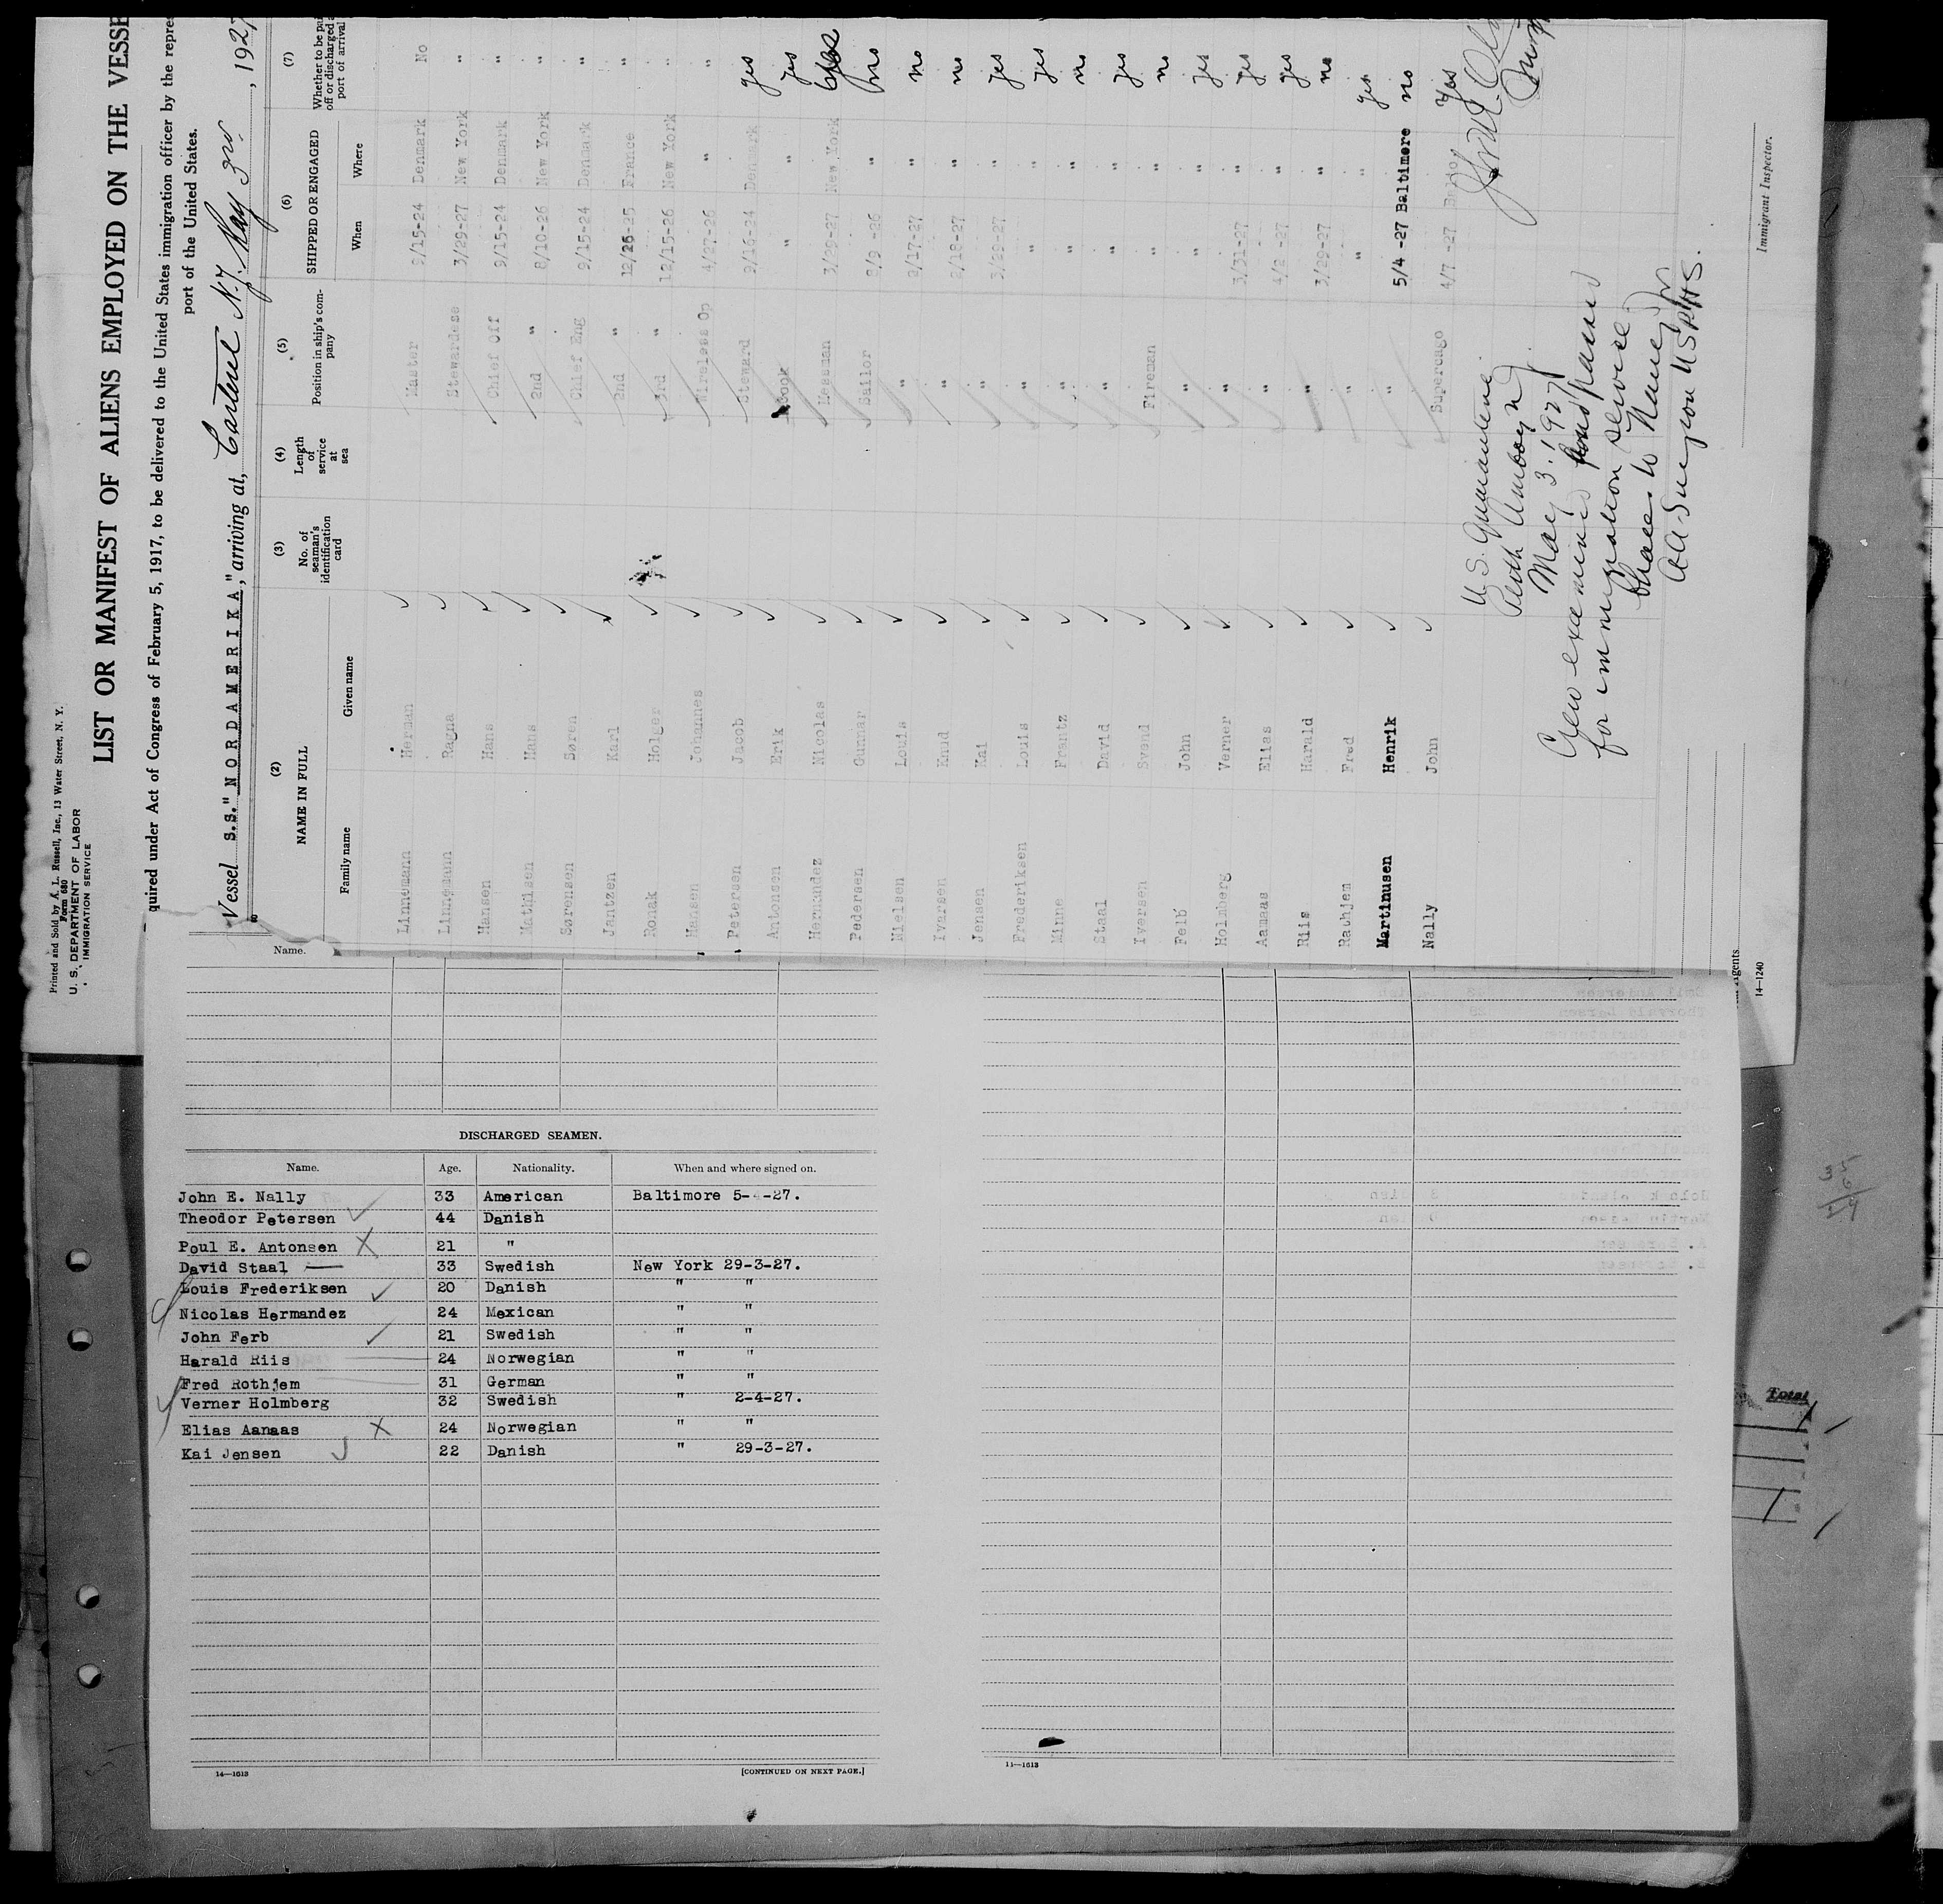 Printed and Sold by A. L. Russell, Inc., 13 Water Street, N. Y.
Form 680
U. S. DEPARTMENT OF LABOR
IMMIGRATION SERVICE
LIST OR MANIFEST OF ALIENS EMPLOYED ON THE VESSE
quired under Act of Congress of February 5, 1917, to be delivered to the United States immigration officer by the repres
port of the United States.
Vessel S.S." NORDAMERIKA," arriving at, Carteret N.J. May 3rd, 1927
(2) (3) (4) (5) (6) (7)
NAME IN FULL
Family name Given name
No. of seaman's identification card
Length of service at sea
Position in ship's com-pany
SHIPPED OR ENGAGED
When Where
Whether to be pai
off or discharged a
port of arrival
Linnemann Herman Master 9/15-24 Denmark No
Linnemann Ragna Stewardess 3/29-27 New York "
Hansen Hans Chief Off 9/15-24 Denmark "
Mathisen Hans 2nd " 8/10-26 New York "
Sørensen Søren Chief Eng 9/15-24 Denmark "
Jantzen Karl 2nd " 12/26-25 France "
Ronak Holger 3rd " 12/15-26 New York "
Hansen Johannes Wireless Op 4/27-26 " "
Petersen Jacob Steward 9/16-24 Denmark yes
Antonsen Erik Cook " " yes
Hermandez Nicolas Messman 3/29-27 New York yes
Pedersen Gunnar Sailor 2/9 -26 " no
Nielsen Louis " 2/17-27 " no
Ivarsen Knud " 2/18-27 " no
Jensen Kai " 3/29-27 " yes
Frederiksen Louis " " " yes
Minne Frantz " " " no
Staal David " " " yes
Iversen Svend Fireman " " no
Felb John " " " yes
Holmberg Verner " 3/31-27 " yes
Aamaas Elias " 4/2 -27 " yes
Riis Harald " 3/29-27 " no
Rathjem Fred " " " yes
Martinusen Henrik " 5/4 -27 Baltimore no
Nally John Supercago 4/7 -27 Yes
U.S. Quarantine
Perth Amboy N J.
May 3. 1927
Crew examined and passed
for immigration service
A.A. Surgeon USPHS.
Immigrant Inspector.
Agents
14—1240
Name.
DISCHARGED SEAMEN.
Name. Age. Nationality. When and where signed on.
John E. Nally 33 American Baltimore 5-4-27.
Theodor Petersen 44 Danish
Poul E. Antonsen 21 "
David Staal 33 Swedish New York 29-3-27.
Louis Frederiksen 20 Danish " "
Nicolas Hermandez 24 Mexican " "
John Ferb 21 Swedish " "
Harald Riis 24 Norwegian " "
Fred Rothjem 31 German " "
Verner Holmberg 32 Swedish " 2-4-27.
Elias Aanaas 24 Norwegian " "
Kai Jensen 22 Danish " 29-3-27.
14—1613
[CONTINUED ON NEXT PAGE.]
11—1613
Total